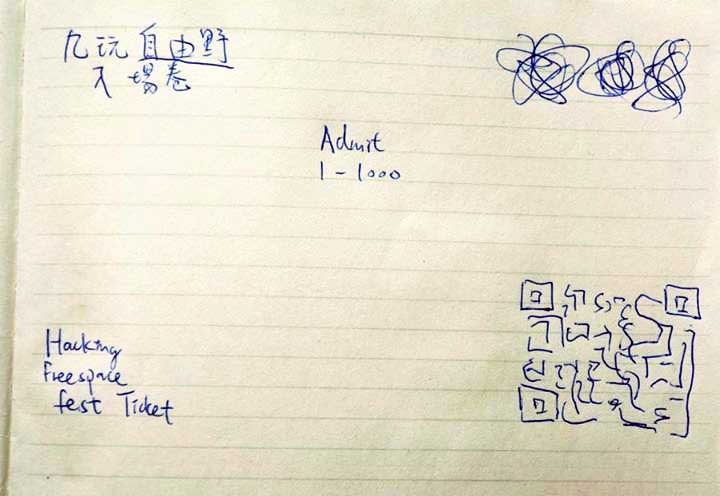 玩自由野
入場卷
Admit
1-1000
Hacking
Freespace
fest Ticket